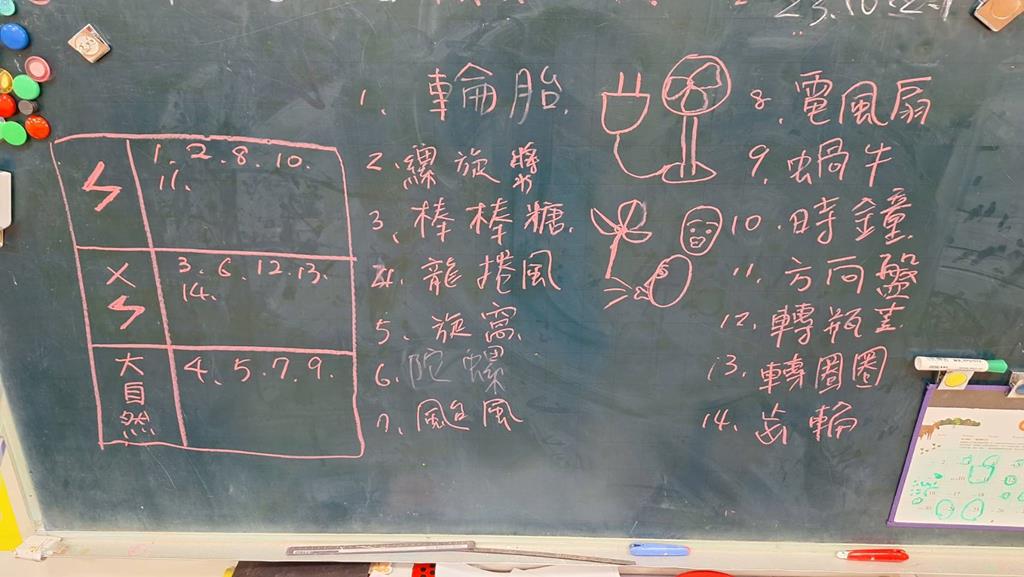 1. 2. 8. 10.
11.
✕
3. 6. 12. 13.
14.
大自然
4. 5. 7. 9.
1. 輪胎
2. 螺旋槳
3. 棒棒糖
4. 龍捲風
5. 旋窩
6. 陀螺
7. 颱風
8. 電風扇
9. 蝸牛
10. 時鐘
11. 方向盤
12. 轉瓶蓋
13. 轉圈圈
14. 齒輪